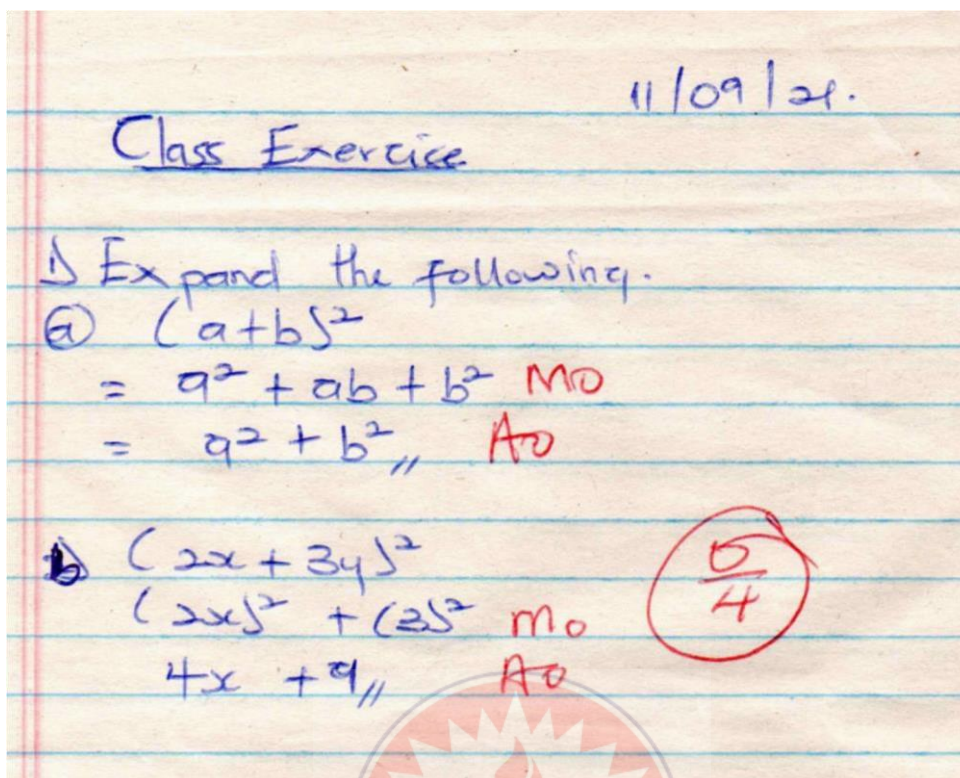 11/09/21.
Class Exercise
1) Expand the following.
(a) (a+b)²
= a² + ab + b² M0
= a² + b²,, A0
b) (2x + 3y)²
(2x)² + (3)² M0
4x + 9,, A0
0/4